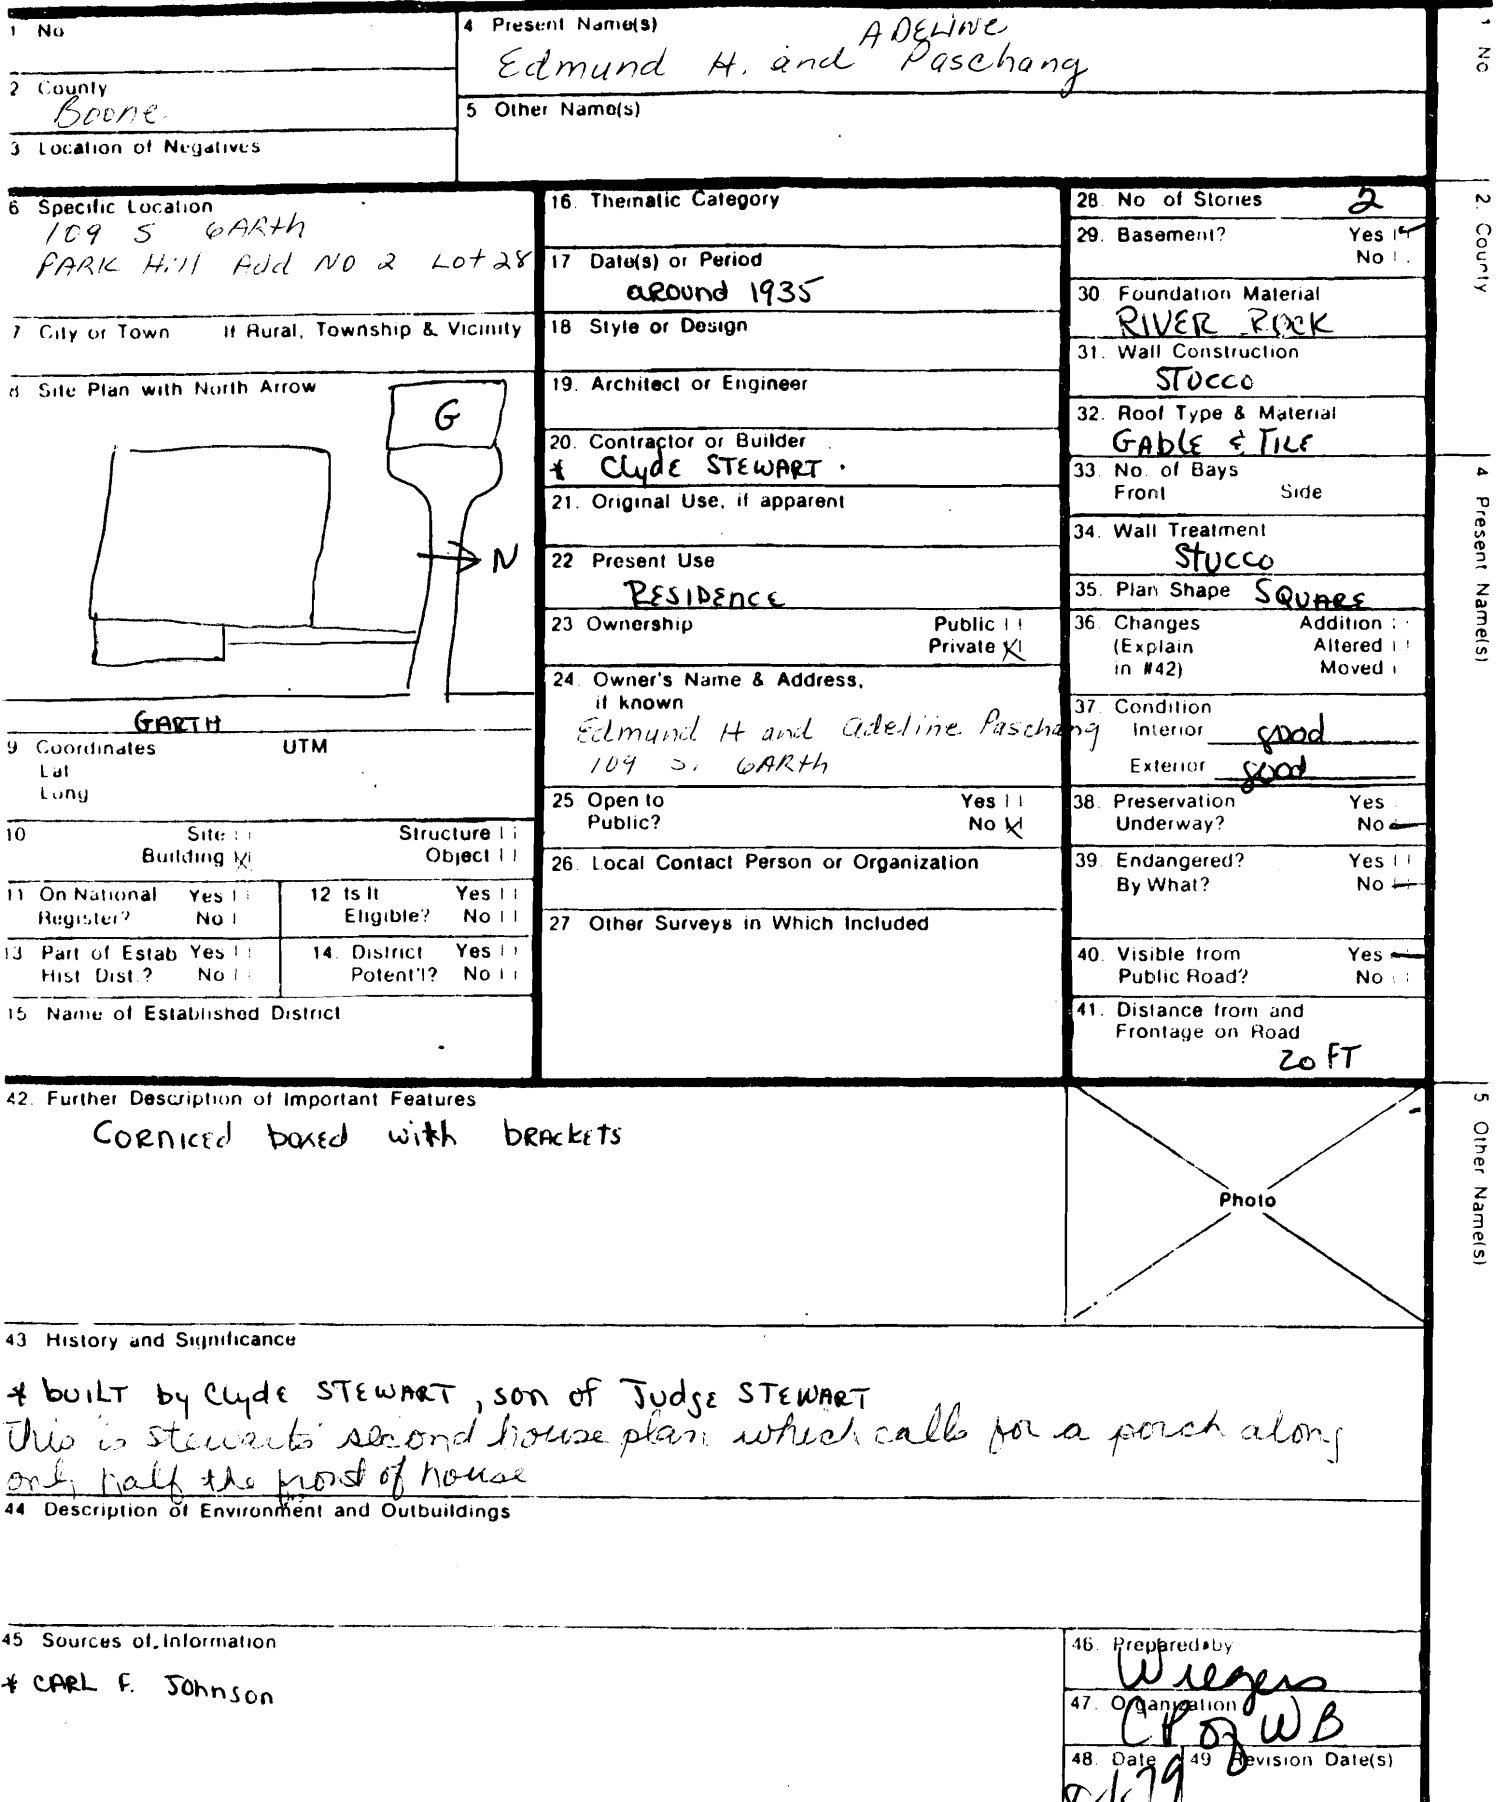 1 No
4 Present Name(s)
ADELINE
Edmund H. and Paschang
2 County
Boone
5 Other Name(s)
3 Location of Negatives
6 Specific Location
109 S GARth
PARK Hill Add NO 2 Lot 28
7 City or Town If Rural, Township & Vicinity
8 Site Plan with North Arrow
G
N
GARTH
9 Coordinates UTM
Lat
Long
10 Site
Structure
Building X
Object
11 On National Register? Yes No
12 Is It Eligible? Yes No
13 Part of Estab Hist Dist.? Yes No
14. District Potent'l? Yes No
15 Name of Established District
16. Thematic Category
17 Date(s) or Period
around 1935
18 Style or Design
19. Architect or Engineer
20. Contractor or Builder
* Clyde STEWART.
21. Original Use, if apparent
22 Present Use
RESIDENCE
23 Ownership Public
Private X
24. Owner's Name & Address,
if known
Edmund H and Adeline Paschang
109 S. GARth
25 Open to Yes
Public? No X
26. Local Contact Person or Organization
27 Other Surveys in Which Included
28. No of Stories 2
29. Basement? Yes
No
30 Foundation Material
RIVER ROCK
31. Wall Construction
STUCCO
32. Roof Type & Material
GABLE & TILE
33. No. of Bays
Front Side
34. Wall Treatment
STUCCO
35. Plan Shape SQUARE
36. Changes Addition
(Explain Altered
in #42) Moved
37. Condition
Interior good
Exterior good
38. Preservation Yes
Underway? No
39. Endangered? Yes
By What? No
40. Visible from Yes
Public Road? No
41. Distance from and
Frontage on Road
20 FT
42. Further Description of Important Features
CORNICED boxed with brackets
Photo
43 History and Significance
* built by Clyde STEWART, son of Judge STEWART
This is Stewarts' second house plan which calls for a porch along
only half the front of house
44 Description of Environment and Outbuildings
45 Sources of Information
* CARL F. Johnson
46. Prepared by
Wiegers
47. Organization
CP of WB
48. Date 49 Revision Date(s)
1 No
2. County
4 Present Name(s)
5 Other Name(s)